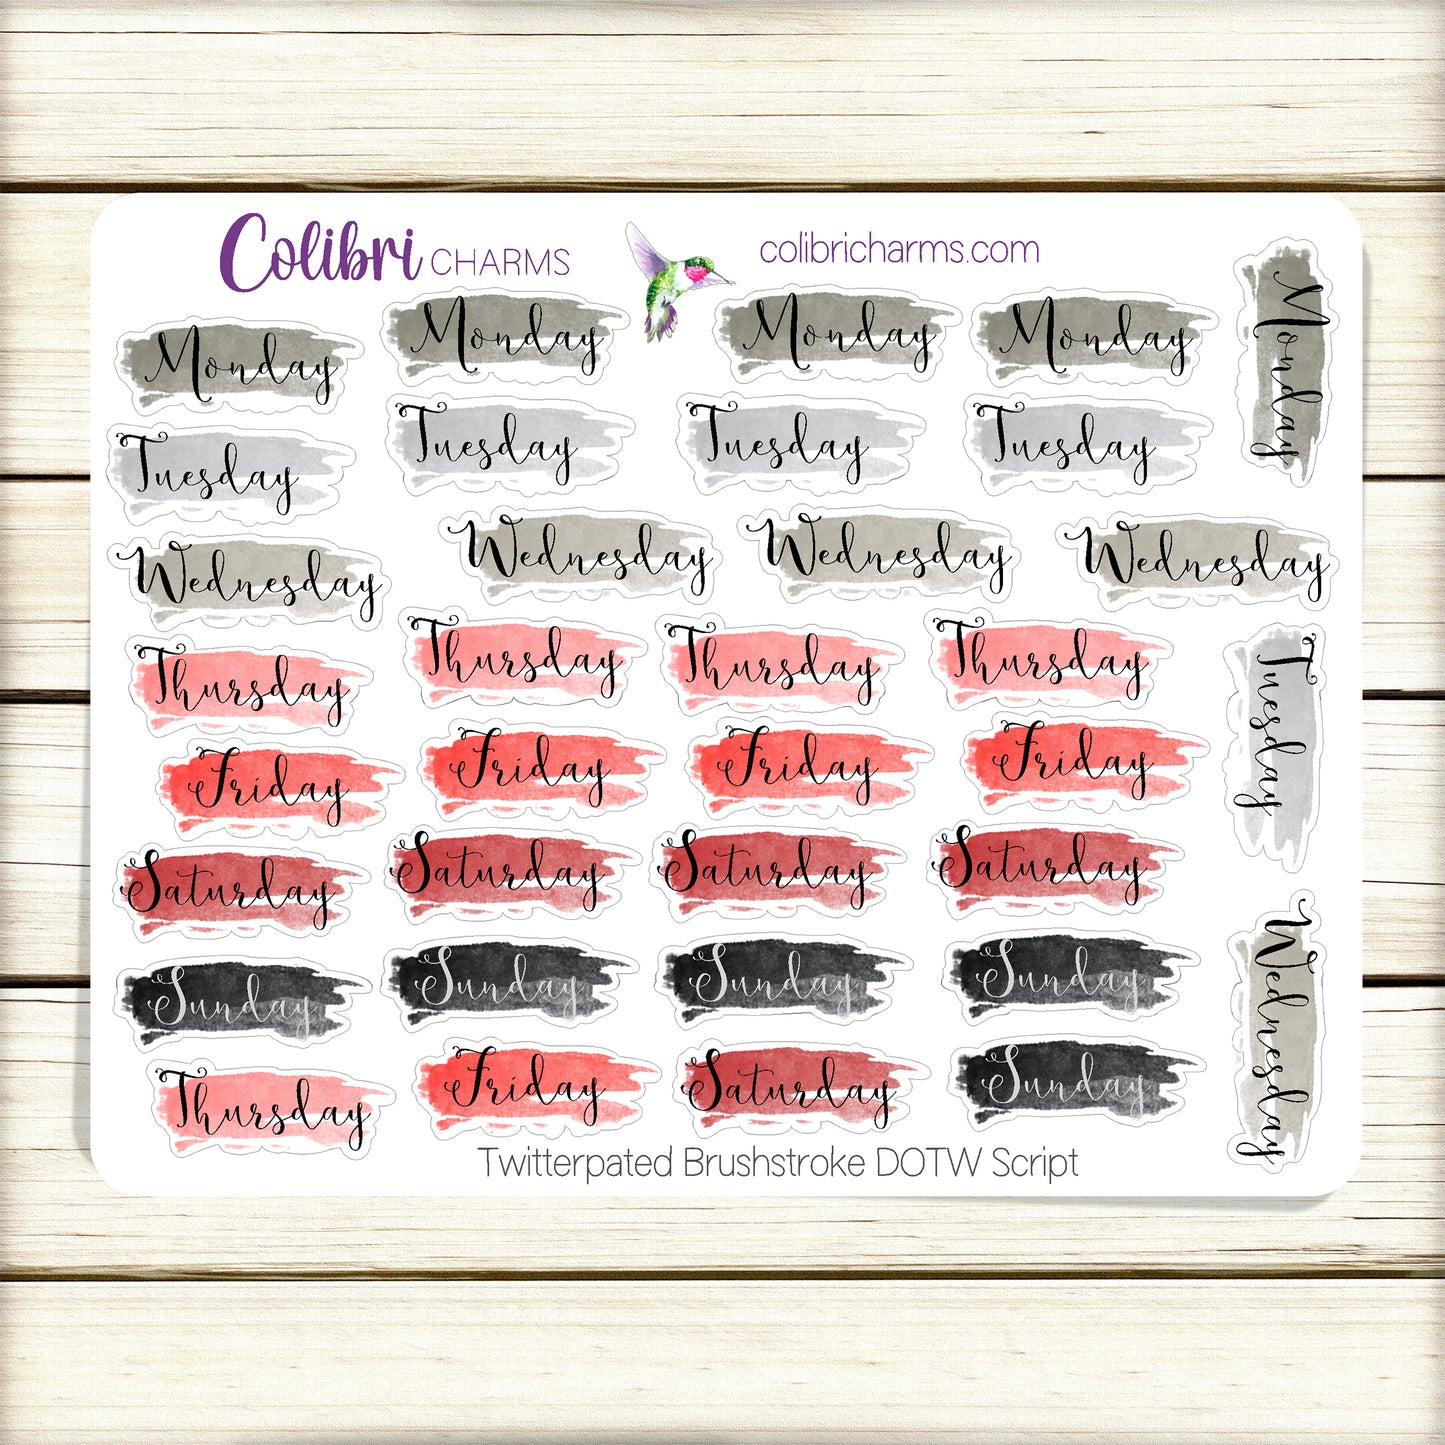 Colibri CHARMS
colibricharms.com
Monday Monday Monday Monday
Monday
Tuesday Tuesday Tuesday Tuesday
Wednesday Wednesday Wednesday Wednesday
Thursday Thursday Thursday Thursday
Tuesday
Friday Friday Friday Friday
Saturday Saturday Saturday Saturday
Sunday Sunday Sunday Sunday
Wednesday
Thursday Friday Saturday Sunday
Twitterpated Brushstroke DOTW Script